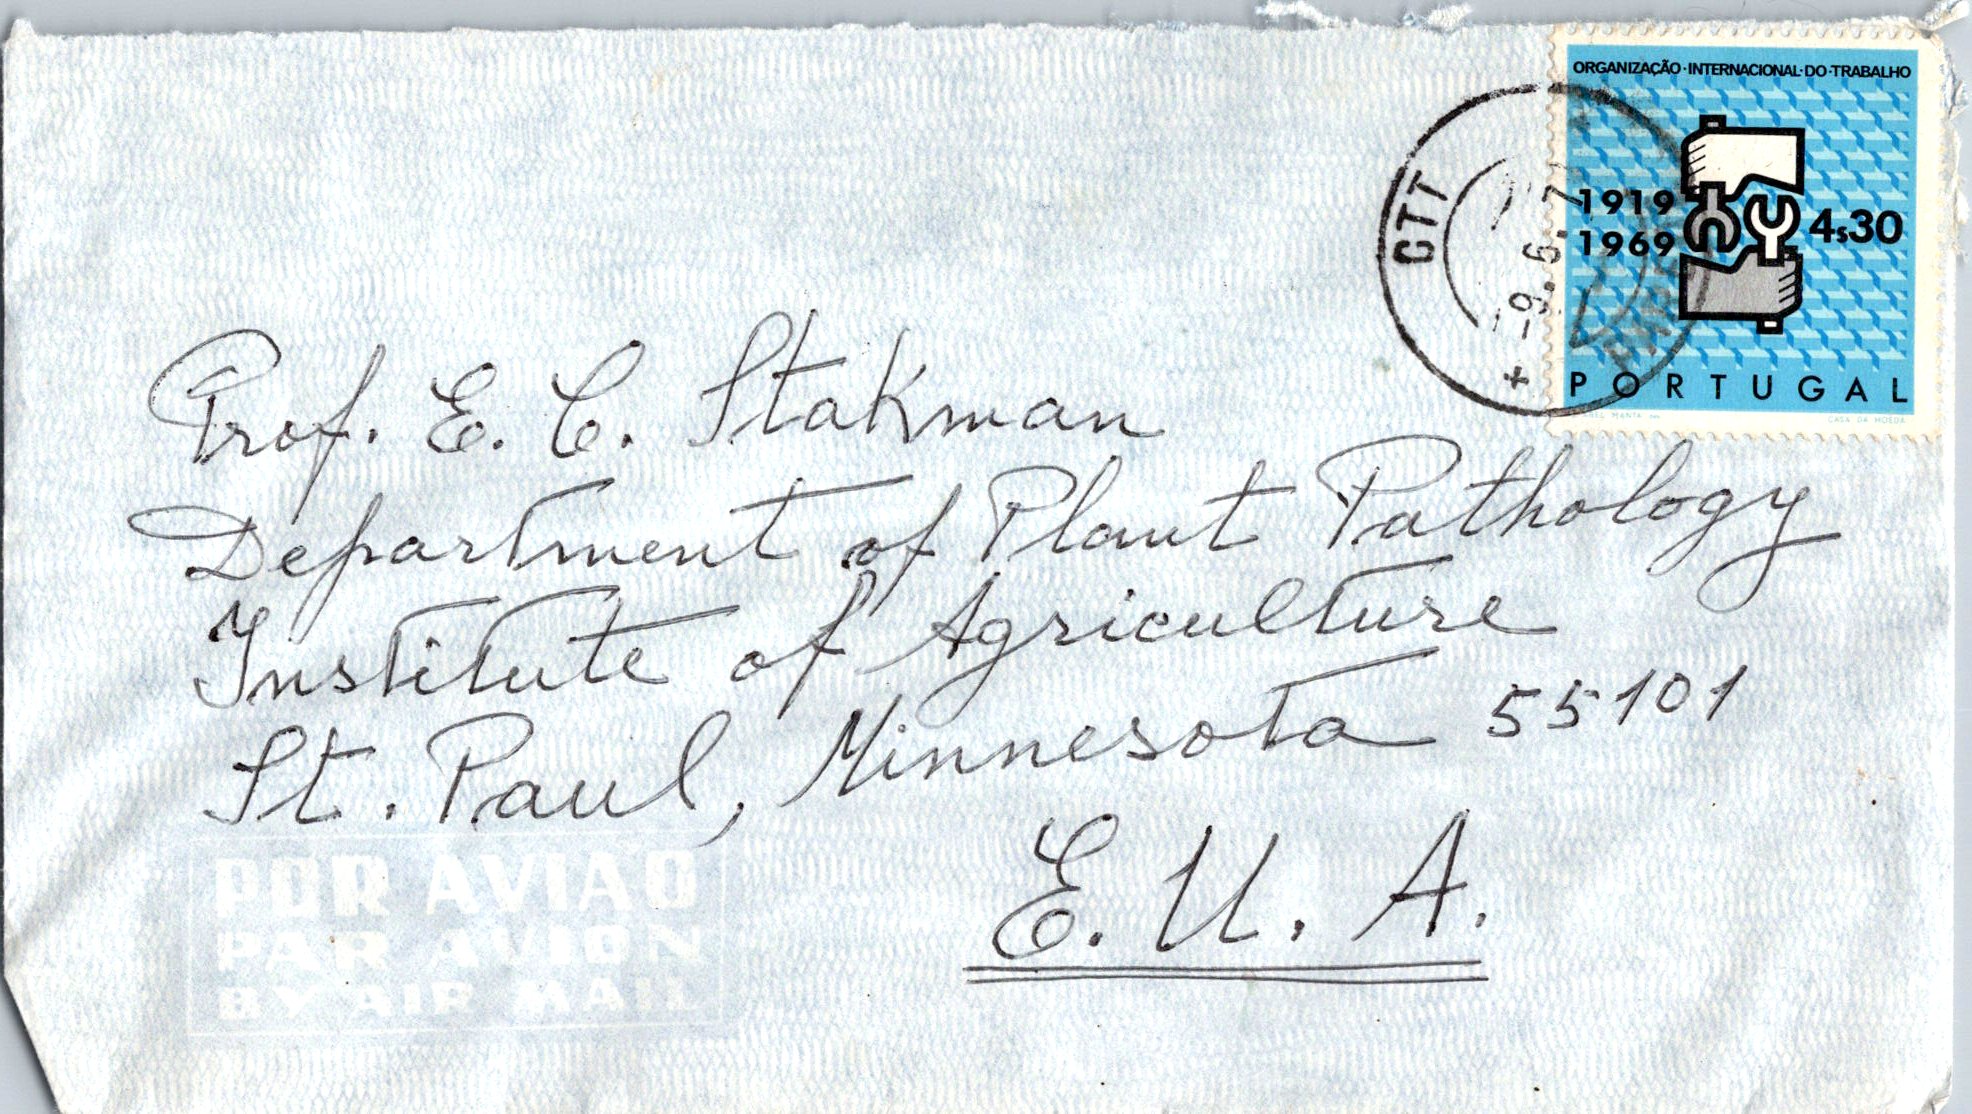 ORGANIZAÇÃO·INTERNACIONAL·DO·TRABALHO
1919
1969
4s30
PORTUGAL
MANTA
CASA DA MOEDA
CTT
-9.6.7
Prof. E. C. Stakman
Department of Plant Pathology
Institute of Agriculture
St. Paul, Minnesota 55101
E. U. A.
POR AVIÃO
PAR AVION
BY AIR MAIL